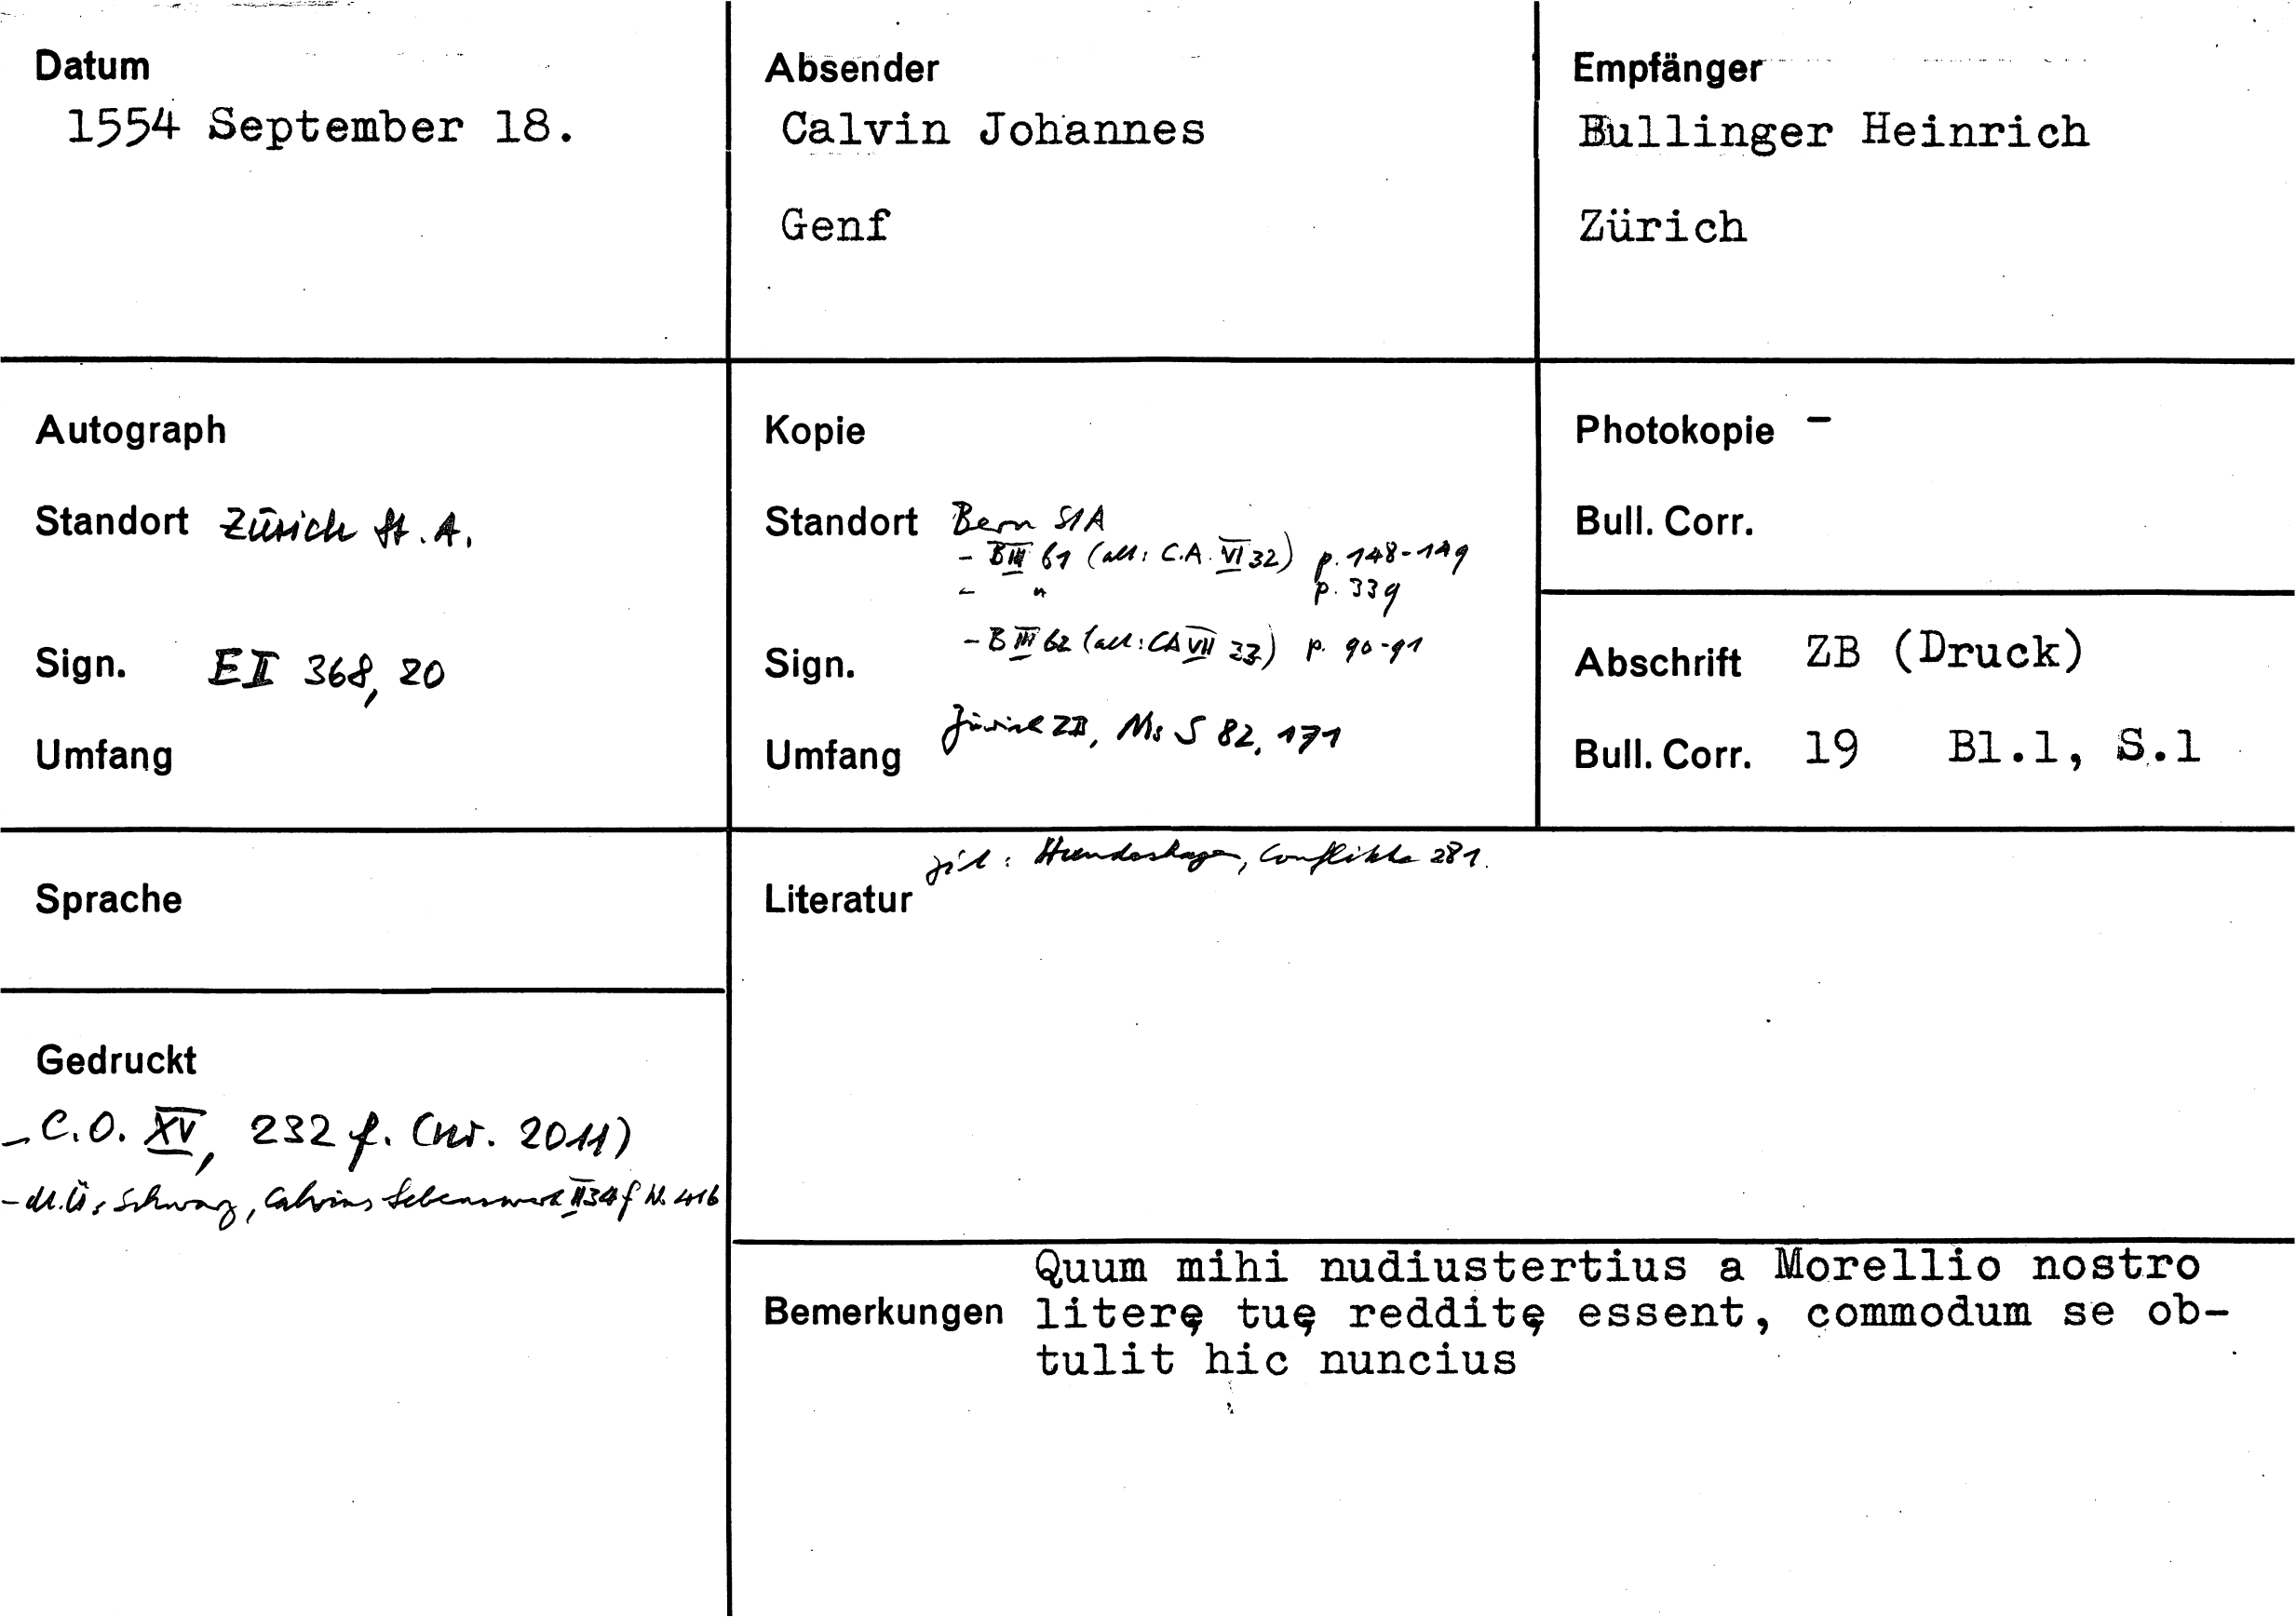 Datum
1554 September 18.
Absender
Calvin Johannes
Genf
Empfänger
Bullinger Heinrich
Zürich
Autograph
Standort Zürich St.A.
Sign. E II 368, 20
Umfang
Kopie
Standort Bern StA
- B III 61 (alt: C.A. VI 32) p. 148-149
- " p. 339
- B III 62 (alt: CA VII 33) p. 90-91
Sign.
Zürich ZB, Ms S 82, 171
Umfang
Photokopie -
Bull. Corr.
Abschrift ZB (Druck)
Bull. Corr. 19 Bl.1, S.1
Sprache
zit: Hundeshagen, Conflikte 281.
Literatur
Gedruckt
- C.O. XV, 232 f. (nr. 2011)
- dt. Ü: Schwarz, Calvins Lebenswerk II 34 f N. 416
Quum mihi nudiustertius a Morellio nostro
Bemerkungen literę tuę redditę essent, commodum se ob-
tulit hic nuncius